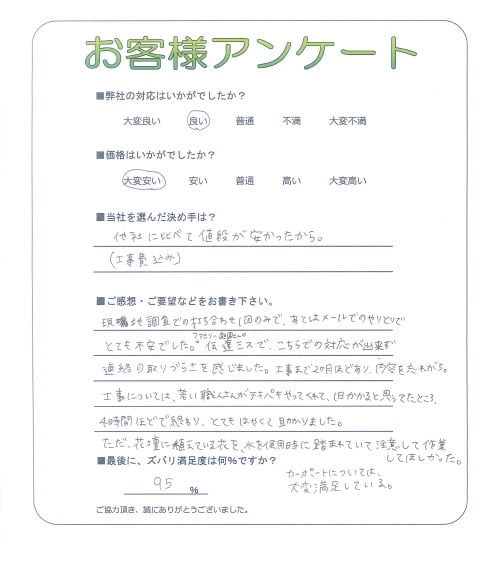 お客様アンケート
■弊社の対応はいかがでしたか？
大変良い 良い 普通 不満 大変不満
■価格はいかがでしたか？
大変安い 安い 普通 高い 大変高い
■当社を選んだ決め手は？
他社に比べて値段が安かったから。
(工事費込み)
■ご感想・ご要望などをお書き下さい。
現場地調査での打ち合わせ1回のみで、あとはメールでのやりとりで
とても不安でした。伝達ミスで、こちらでの対応が出来ず
連絡の取りづらさを感じました。工事まで2ヶ月ほどあり、内容を忘れがち。
工事については、若い職人さんがテキパキやってくれて、1日かかると思ってたところ、
4時間ほどで終わり、とてもはやくて助かりました。
ただ、花壇に植えている花を、水を使用時に踏まれていて注意して作業
してほしかった。
■最後に、ズバリ満足度は何%ですか？
95 %
カーポートについては、
大変満足している。
ご協力頂き、誠にありがとうございました。